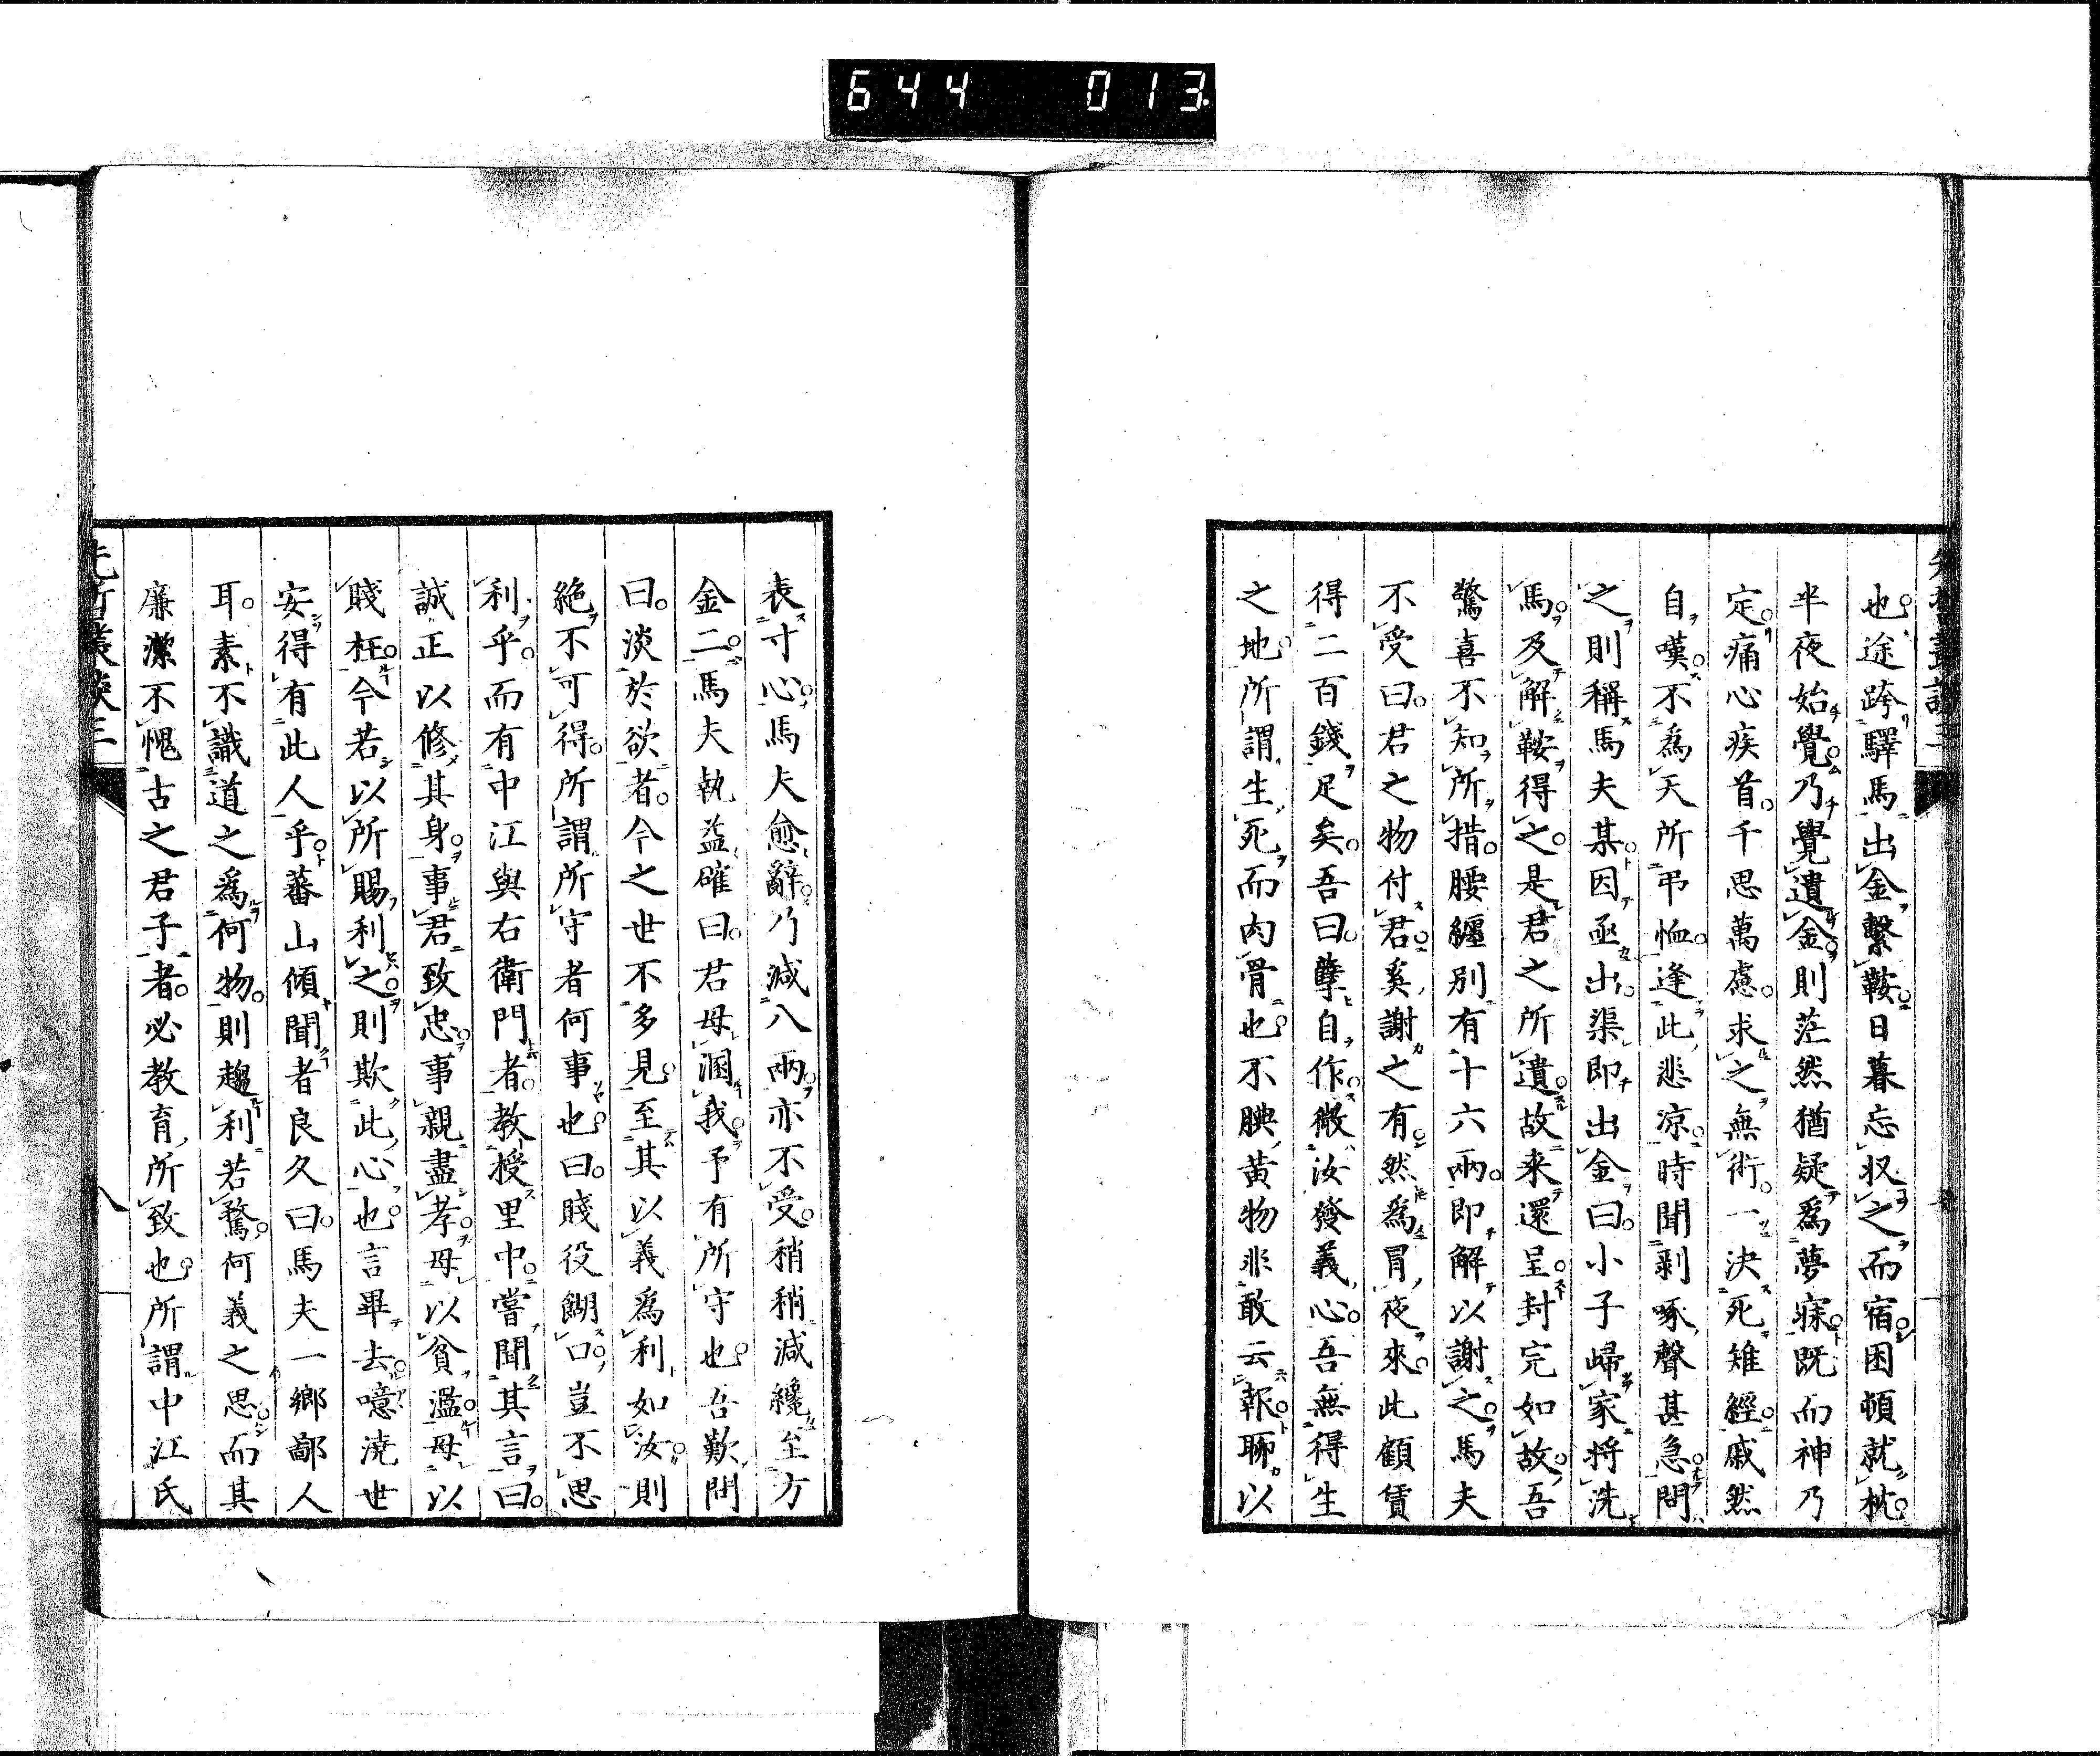 644 013
先哲叢談三
也途跨驛馬出金繫鞍日暮忘収之而宿困頓就枕
半夜始覺乃覺遺金則茫然猶疑爲夢寐既而神乃
定痛心疾首千思萬慮求之無術一決死雉經戚然
自嘆不爲天所弔恤逢此悲凉時聞剥啄聲甚急問
之則稱馬夫某因亟出渠即出金曰小子歸家將洗
馬及解鞍得之是君之所遺故来還呈封完如故吾
驚喜不知所措腰纏別有十六兩即解以謝之馬夫
不受曰君之物付君奚謝之有然爲冒夜來此顧賃
得二百錢足矣吾曰孽自作微汝發義心吾無得生
之地所謂生死而肉骨也不腆黃物非敢云報聊以
表寸心馬夫愈辭乃減八兩亦不受稍稍減纔至方
金二馬夫執益確曰君母溷我予有所守也吾歎問
曰淡於欲者今之世不多見至其以義爲利如汝則
絶不可得所謂所守者何事也曰賤役餬口豈不思
利乎而有中江與右衛門者教授里中嘗聞其言曰
誠正以修其身事君致忠事親盡孝母以貧濫母以
賤枉今若以所賜利之則欺此心也言畢去噫澆世
安得有此人乎蕃山傾聞者良久曰馬夫一鄉鄙人
耳素不識道之爲何物則趨利若騖何義之思而其
廉潔不愧古之君子者必教育所致也所謂中江氏
先哲叢談三
八